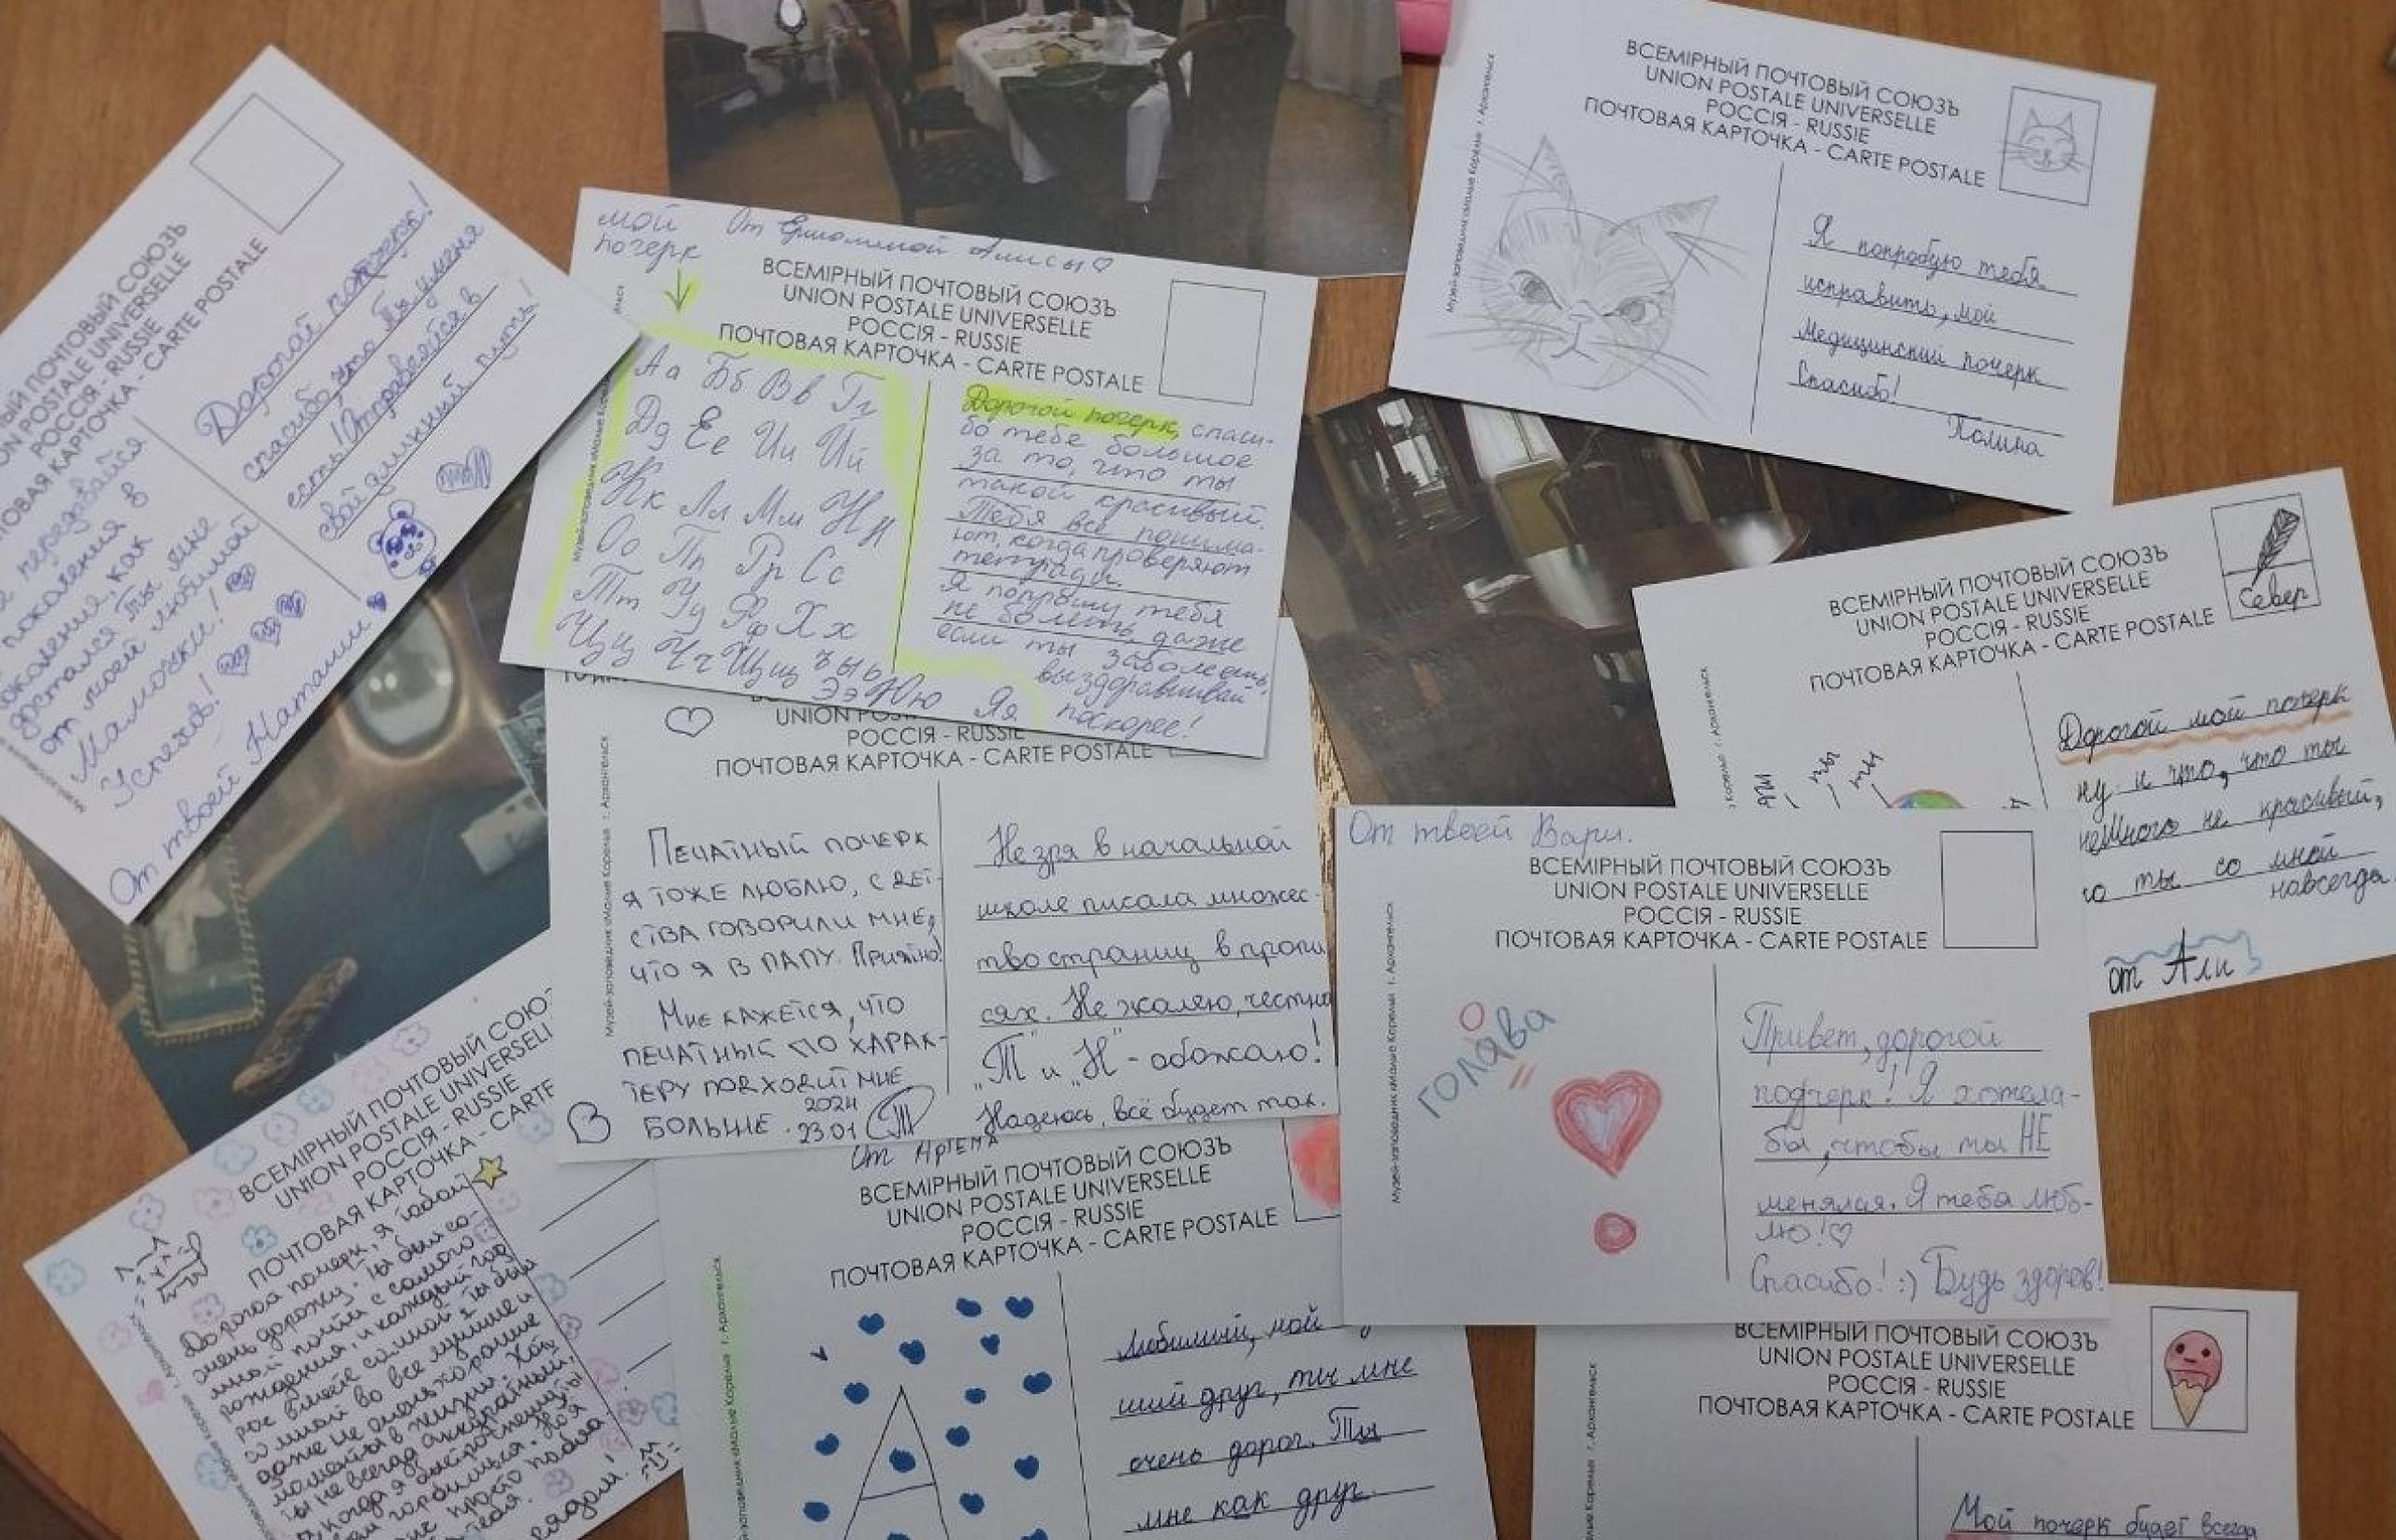 ПОЧТОВЫЙ СОЮЗЪ
UNION POSTALE UNIVERSELLE
РОССІЯ - RUSSIE
ПОЧТОВАЯ КАРТОЧКА - CARTE POSTALE
Дорогой почерк!
спасибо, что ты у меня
есть! Отправляйся в
свой длинный путь!
передавайся
поколения в
поколение, как
достался ты мне
от моей любимой
Мамочки!
Успехов!
От твоей Натании
мой
почерк
От Ермолиной Алисы
ВСЕМІРНЫЙ ПОЧТОВЫЙ СОЮЗЪ
UNION POSTALE UNIVERSELLE
РОССІЯ - RUSSIE
ПОЧТОВАЯ КАРТОЧКА - CARTE POSTALE
Аа Бб Вв Гг
Дд Ее Ии Йй
Кк Лл Мм Нн
Оо Пп Рр Сс
Тт Уу Фф Хх
Цц Чч Щщ ъыь
Ээ Юю Яя
Дорогой почерк, спаси-
бо тебе большое
за то, что ты
такой красивый.
Тебя все понима-
ют, когда проверяют
тетради.
Я попрошу тебя
не болеть, даже
если ты заболеешь,
выздоравливай
поскорее!
Музей-заповедник «Малые Корелы» г. Архангельск
ВСЕМІРНЫЙ ПОЧТОВЫЙ СОЮЗЪ
UNION POSTALE UNIVERSELLE
РОССІЯ - RUSSIE
ПОЧТОВАЯ КАРТОЧКА - CARTE POSTALE
Я попробую тебя
исправить, мой
Медицинский почерк
Спасибо!
Полина
ВСЕМІРНЫЙ ПОЧТОВЫЙ СОЮЗЪ
UNION POSTALE UNIVERSELLE
РОССІЯ - RUSSIE
ПОЧТОВАЯ КАРТОЧКА - CARTE POSTALE
Север
Дорогой мой почерк
ну и что, что ты
немного не красивый,
ты со мной
навсегда.
от Али
UNION POSTALE
РОССІЯ - RUSSIE
ПОЧТОВАЯ КАРТОЧКА - CARTE POSTALE
Музей-заповедник «Малые Корелы» г. Архангельск
Печатный почерк
я тоже люблю, с дет-
ства говорили мне,
что я в папу. Приятно!
Мне кажется, что
печатный по харак-
теру подходит мне
больше.
2024
23 01
Не зря в начальной
школе писала множес-
тво страниц в пропи
сях. Не жалею, честно
„Т" и „Н" - обожаю!
Надеюсь, всё будет так.
От твоей Вари.
ВСЕМІРНЫЙ ПОЧТОВЫЙ СОЮЗЪ
UNION POSTALE UNIVERSELLE
РОССІЯ - RUSSIE
ПОЧТОВАЯ КАРТОЧКА - CARTE POSTALE
Музей-заповедник «Малые Корелы» г. Архангельск
голава
о
Привет, дорогой
подчерк! Я хотела-
бы, чтобы ты НЕ
менялся. Я тебя люб-
лю!
Спасибо! :) Будь здоров!
ВСЕМІРНЫЙ ПОЧТОВЫЙ СОЮЗ
UNION POSTALE UNIVERSELL
РОССІЯ - RUSSIE
ПОЧТОВАЯ КАРТОЧКА - CARTE
Дорогой почерк, я тобой
очень дорожу. Ты был со
мной почти с самого
рождения, и каждый год
рос вместе со мной. Ты был
со мной во все лучшие и
даже не очень хорошие
моменты в жизни.
ты не всегда аккуратный,
когда я
просто
тебя.
рядом!
От Артёма
ВСЕМІРНЫЙ ПОЧТОВЫЙ СОЮЗЪ
UNION POSTALE UNIVERSELLE
РОССІЯ - RUSSIE
ПОЧТОВАЯ КАРТОЧКА - CARTE POSTALE
«Малые Корелы» г. Архангельск
А
Любимый, мой
ший друг, ты мне
очень дорог. Ты
мне как друг.
ВСЕМІРНЫЙ ПОЧТОВЫЙ СОЮЗЪ
UNION POSTALE UNIVERSELLE
РОССІЯ - RUSSIE
ПОЧТОВАЯ КАРТОЧКА - CARTE POSTALE
г. Архангельск
Мой почерк будет всегда